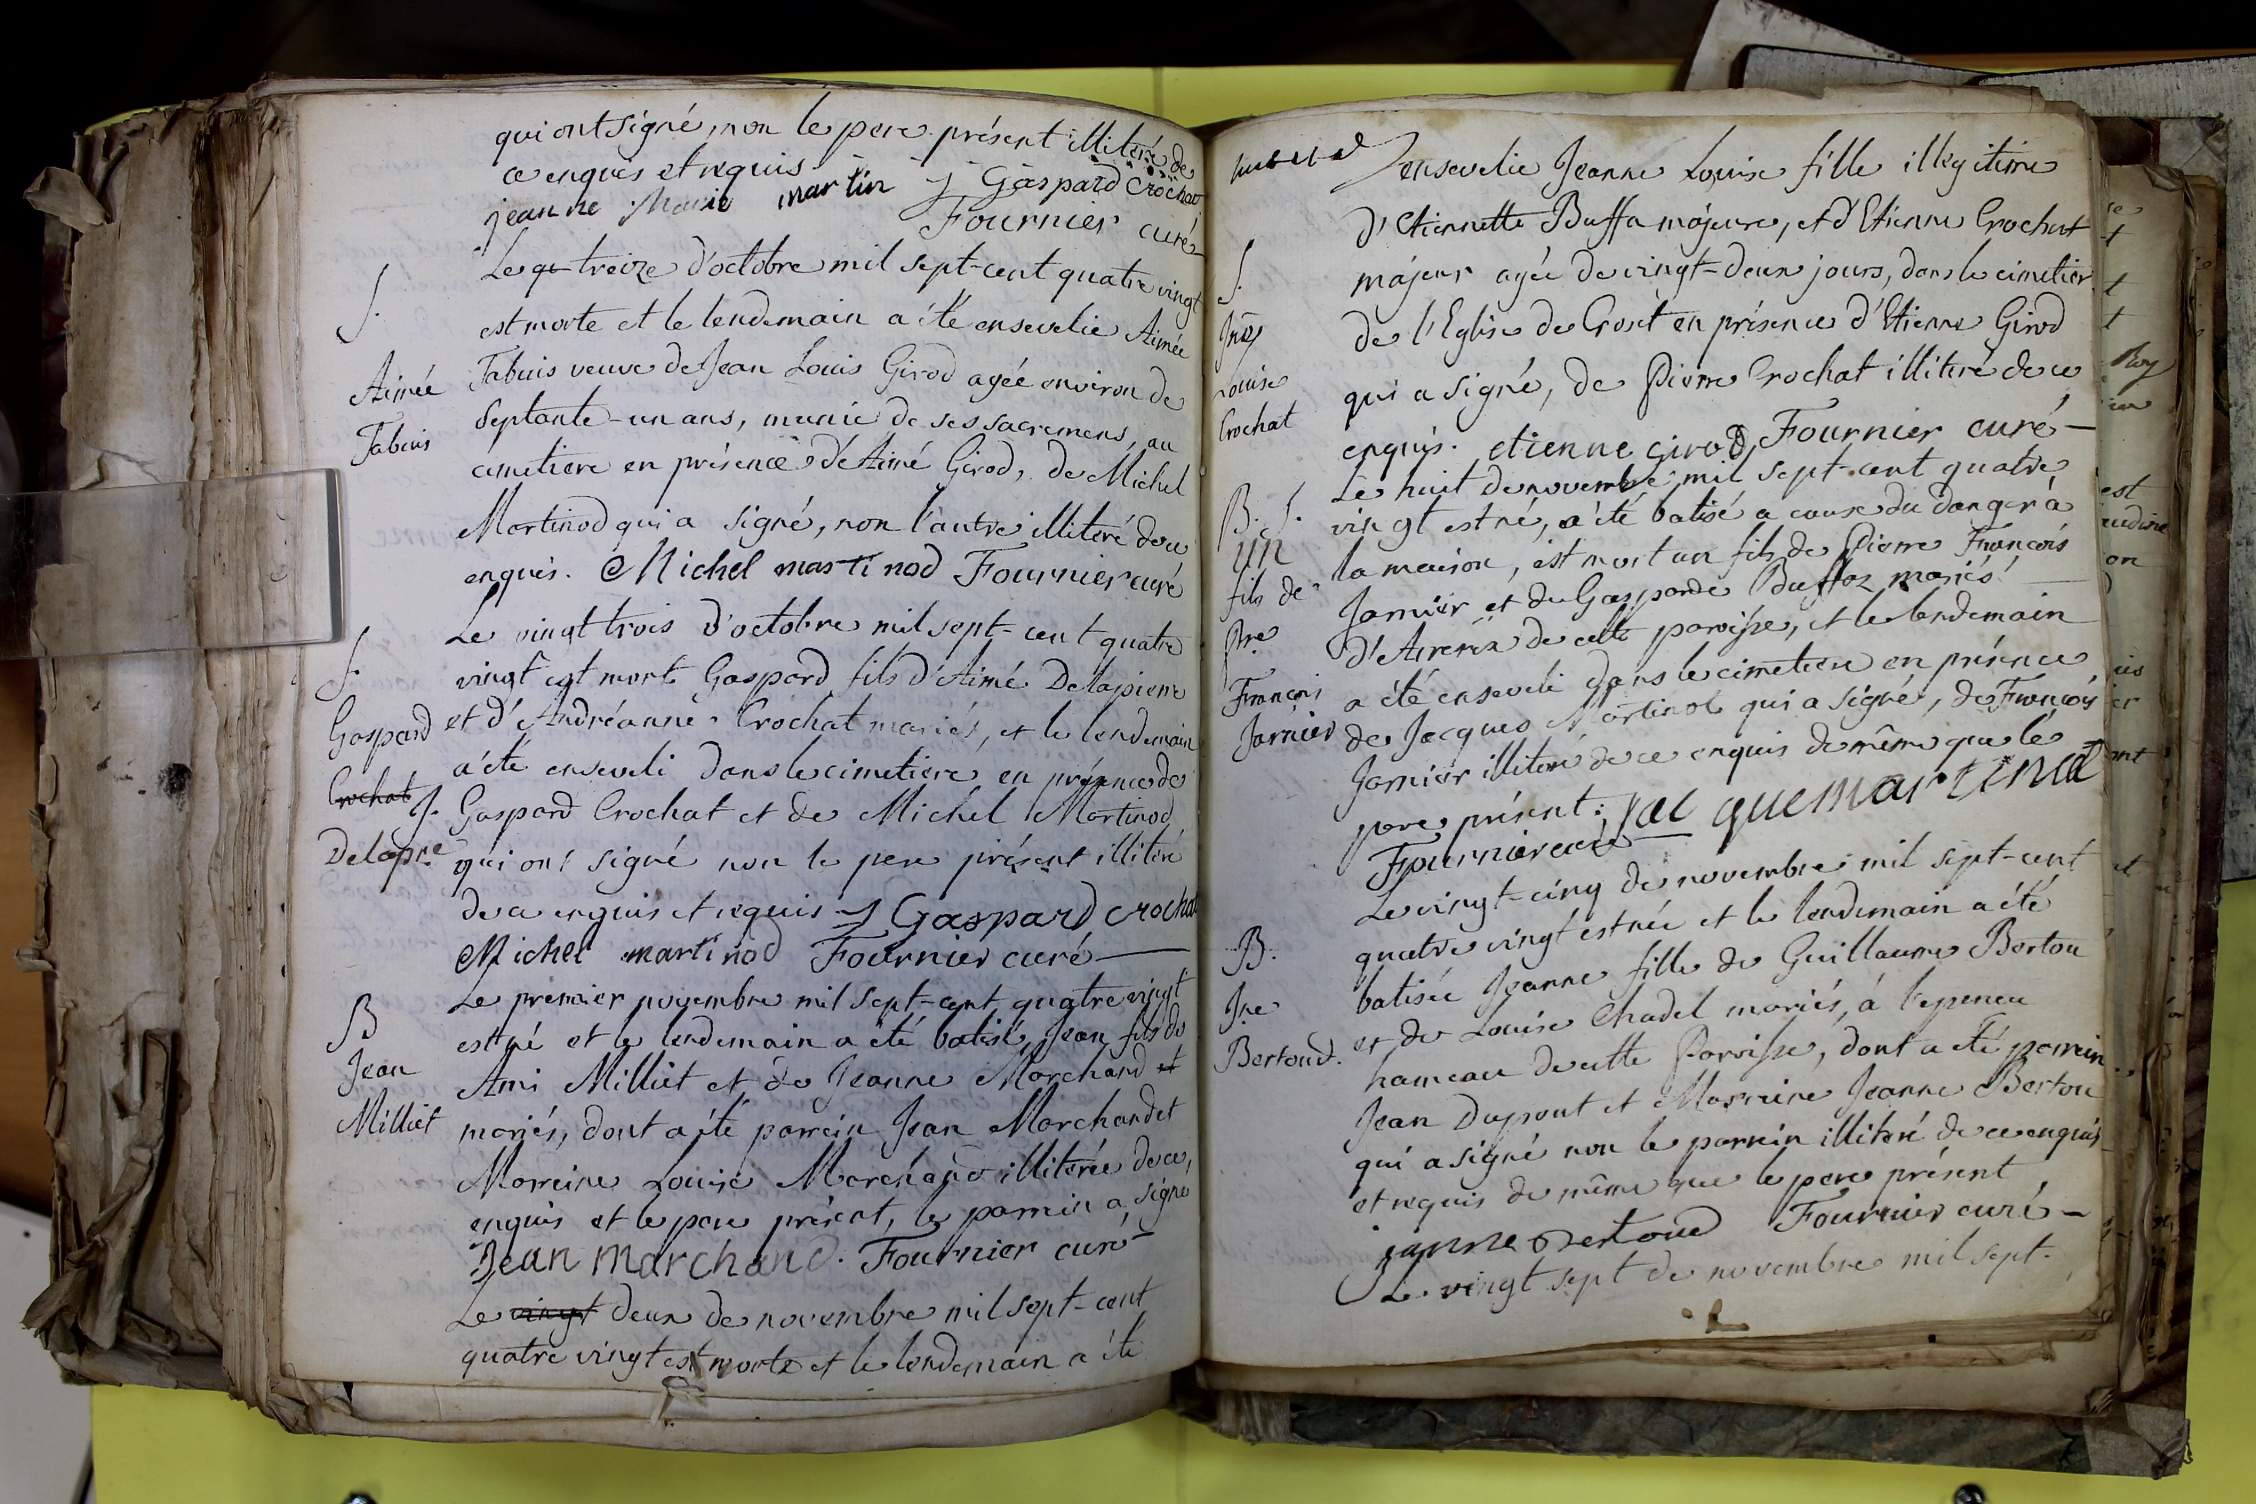 qui ont signé, non le pere présent illiteré de
ce enquis et requis
jeanne Marie martin J Gaspard Crochat
Fournier curé
Le treize d'octobre mil sept-cent quatre vingt
S.
est morte et le lendemain a été ensevelie Aimée
Aimée
Tabuis veuve de Jean Louis Girod agée environ de
Tabuis
Septante-un ans, munie de ses sacremens, au
cimetiere en présence d'Aimé Girod, de Michel
Martinod qui a signé, non l'autre illiteré de ce
enquis. Michel martinod Fournier curé
Le vingt trois d'octobre mil sept-cent quatre
S.
vingt est mort Gaspard fils d'Aimé Delapierre
Gaspard
et d'Andréanne Crochat mariés, et le lendemain
a été enseveli dans le cimetiere en présence de
Crochat J.
Gaspard Crochat et de Michel Martinod
Delapre
qui ont signé non le pere présent illiteré
de ce enquis et requis J Gaspard Crochat
Michel martinod Fournier curé
Le premier novembre mil sept-cent quatre vingt
B
est né et le lendemain a été batisé, Jean fils de
Jean
Ami Milliet et de Jeanne Marchand et
Milliet
mariés, dont a été parrein Jean Marchand et
Marreine Louise Marchand illiterée de ce,
enquis et le pere présent, le parrein a signé
Jean marchand. Fournier curé
Le vingt deux de novembre mil sept-cent
quatre vingt est morte et le lendemain a été
ensevelie Jeanne Louise fille illégitime
d'Etiennette Buffa majeure, et d'Etienne Crochat
S.
majeur agée de vingt-deux jours, dans le cimetier
de l'Eglise de Croset en présence d'Etienne Girod
Louise
qui a signé, de Pierre Crochat illiteré de ce
Crochat
enquis. etienne girod Fournier curé
Le huit de novembre mil sept-cent quatre
B. S.
vingt est né, a été batisé a cause du danger à
un
la maison, est mort un fils de Pierre François
fils de
Jarnier et de Gasparde Buffaz mariés
Pre
d'Avrerix de cette paroisse, et le lendemain
François
a été enseveli dans le cimetiere en présence
Jarnier
de Jacques Martinod qui a signé, de François
Jarnier illiteré de ce enquis de même que le
pere présent: jac que martinod
Fournier curé
Le vingt-cinq de novembre mil sept-cent
quatre vingt est née et le lendemain a été
B.
batisée Jeanne fille de Guillaume Bertou
Jne
et de Louise Chadel mariés, à l'epeneu
Bertoud.
hameau de cette Paroisse, dont a été parrein
Jean Dupont et Marreine Jeanne Bertou
qui a signé non le parrein illiteré de ce enquis
et requis de même que le pere présent
janne Bertoud Fournier curé
Le vingt sept de novembre mil sept-